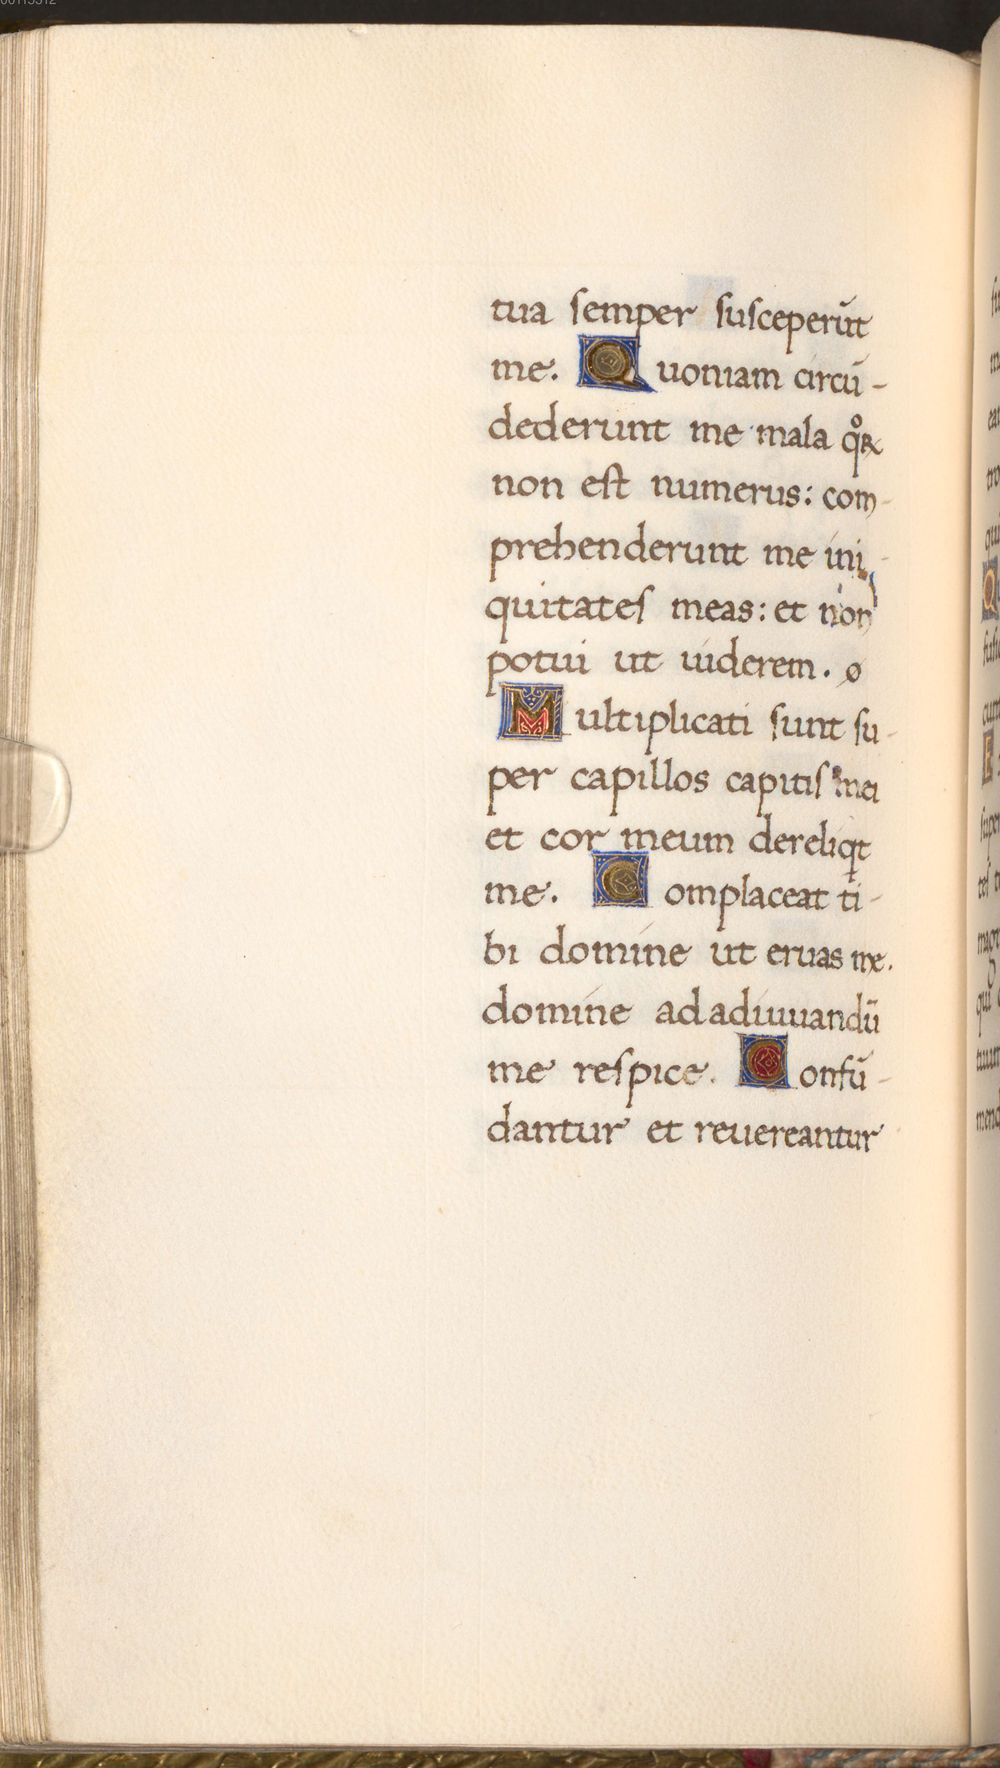 tua semper susceperūt
me. Quoniam circū-
dederunt me mala qͦꝝ
non est numerus: com-
prehenderunt me ini-
quitates meas: et non
potui ut uiderem. ø
Multiplicati sunt su-
per capillos capitis mei
et cor meum dereliqt
me. Complaceat ti-
bi domine ut eruas me.
domine ad adiuuandū
me respice. Confū-
dantur et reuereantur